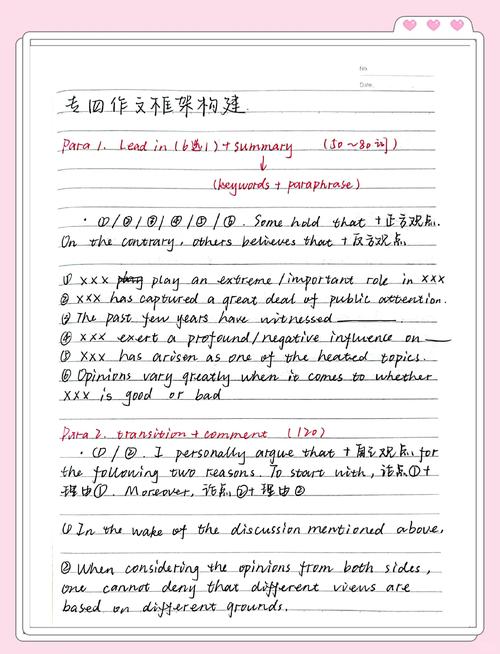 No.
Date.
专四作文框架构建.
Para 1. Lead in (6选1) + summary (50～80词)
↓
(keywords + paraphrase)
· ①/②/③/④/⑤/⑥. Some hold that + 正方观点.
On the contrary, others believes that + 反方观点.
① XXX play an extreme/important role in XXX
② XXX has captured a great deal of public attention.
③ The past few years have witnessed ______.
④ XXX exert a profound/negative influence on ___
⑤ XXX has arisen as one of the heated topics.
⑥ Opinions vary greatly when it comes to whether
XXX is good or bad
Para 2. transition + comment (120)
· ①/②. I personally argue that + 自己观点 for
the following two reasons. To start with, 论点①+
理由①. Moreover, 论点②+ 理由②
① In the wake of the discussion mentioned above,
② When considering the opinions from both sides,
one cannot deny that different views are
based on different grounds.